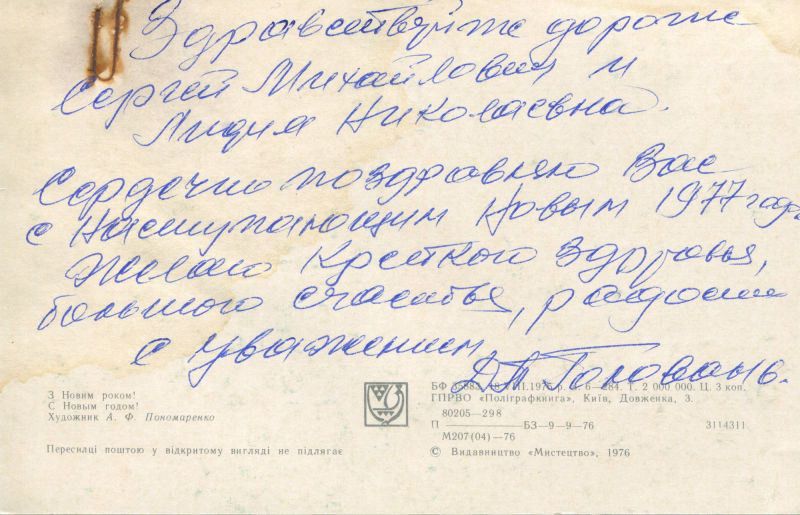 Здравствуйте дорогие
Сергей Михайлович и
Лидия Николаевна.
Сердечно поздравляю Вас
с Наступающим Новым 1977 годом.
Желаю крепкого здоровья,
большого счастья, радости
с уважением,
З Новим роком!
С Новым годом!
Художник А. Ф. Пономаренко
Пересилці поштою у відкритому вигляді не підлягає
БФ 3-883. 18. VIII. 1975 р. 6—284. Т. 2 000 000. Ц. 3 коп.
ГПРВО «Поліграфкнига», Київ, Довженка, 3.
80205—298
П ——— БЗ—9—9—76 3114311
М207(04)—76
© Видавництво «Мистецтво», 1976